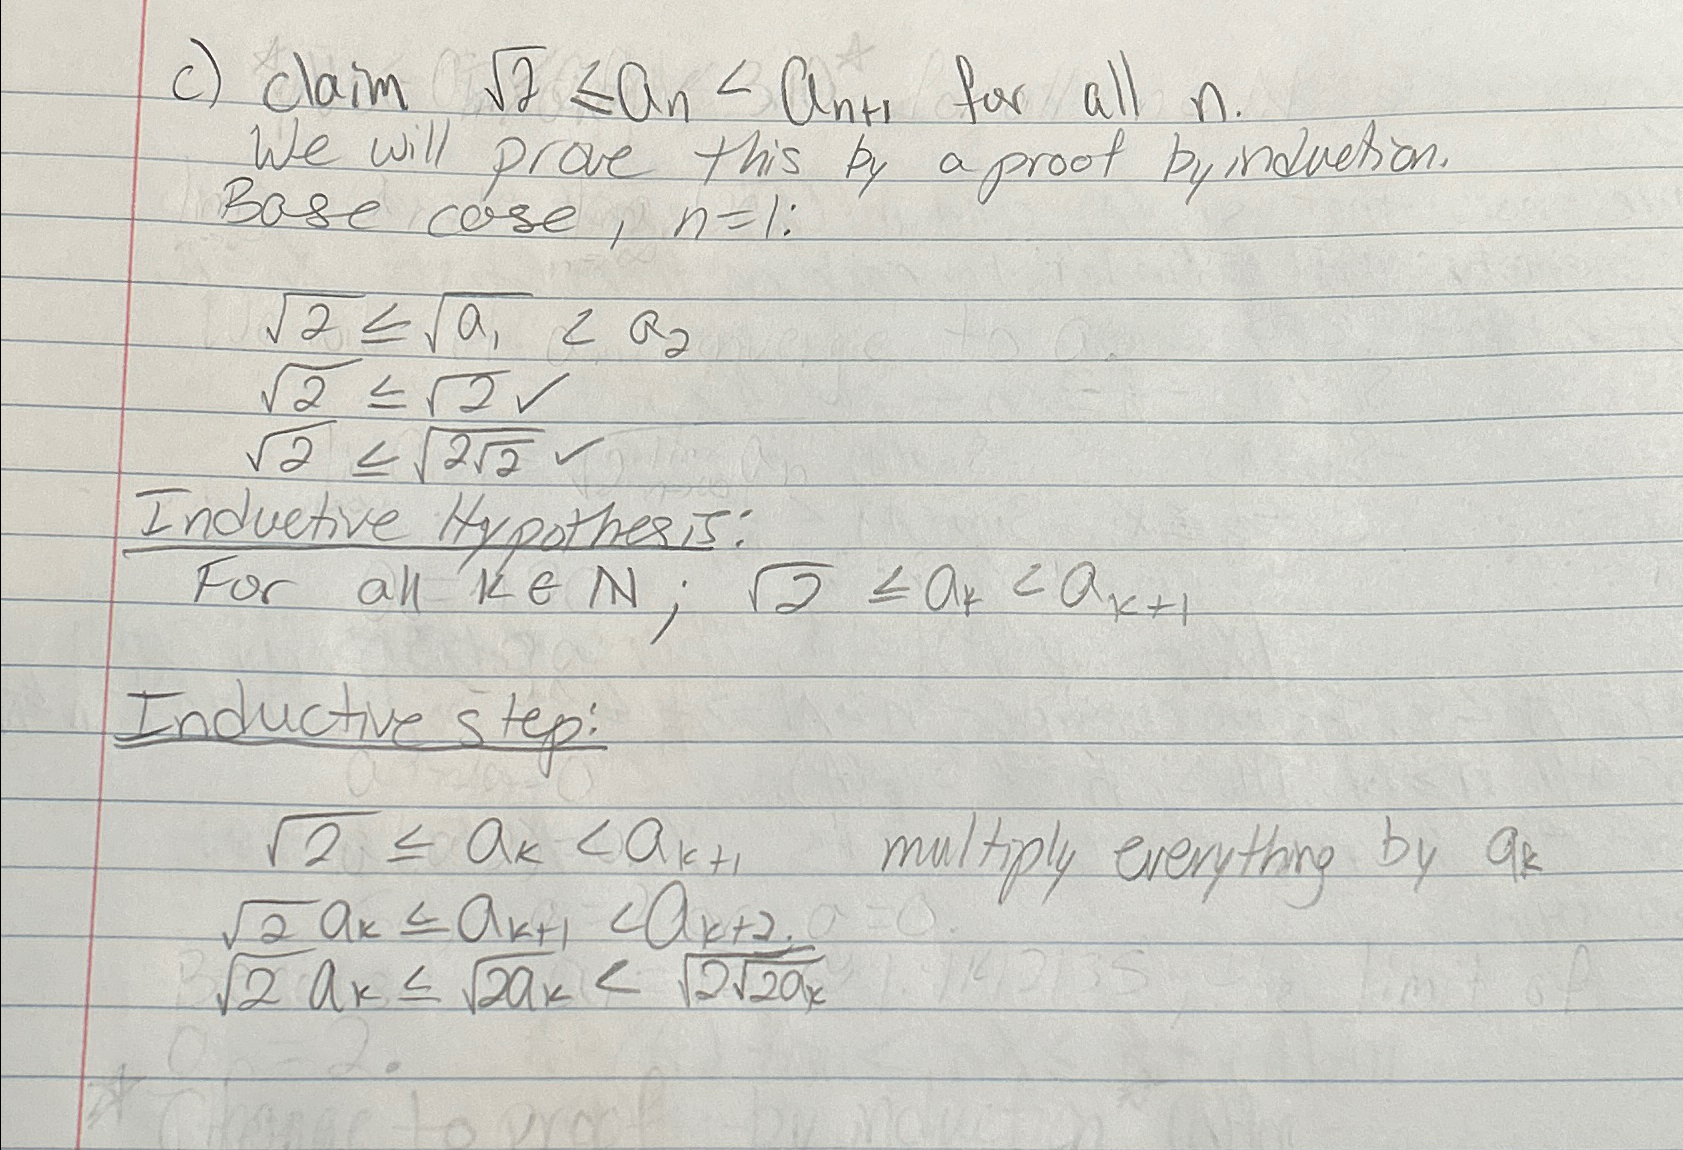 c) claim √2 ≤ aₙ < aₙ₊₁ for all n.
We will prove this by a proof by induction.
Base case, n=1:
√2 ≤ √a₁ < a₂
√2 ≤ √2 ✓
√2 ≤ √(2√2) ✓
Inductive Hypothesis:
For all k ∈ N; √2 ≤ aₖ < aₖ₊₁
Inductive step:
√2 ≤ aₖ < aₖ₊₁ multiply everything by aₖ
√2 aₖ ≤ aₖ₊₁ < aₖ₊₂.
√2 aₖ ≤ √(2aₖ) < √(2√(2aₖ))